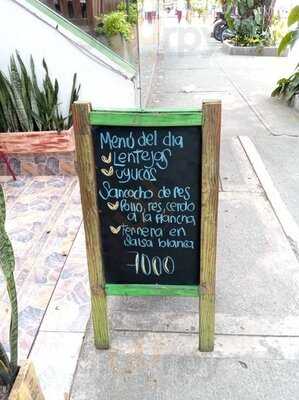 Menú del día
Lentejas
uyucos
Sancocho de res
Pollo, res, cerdo
a la plancha,
Ternera en
salsa blanca
7000